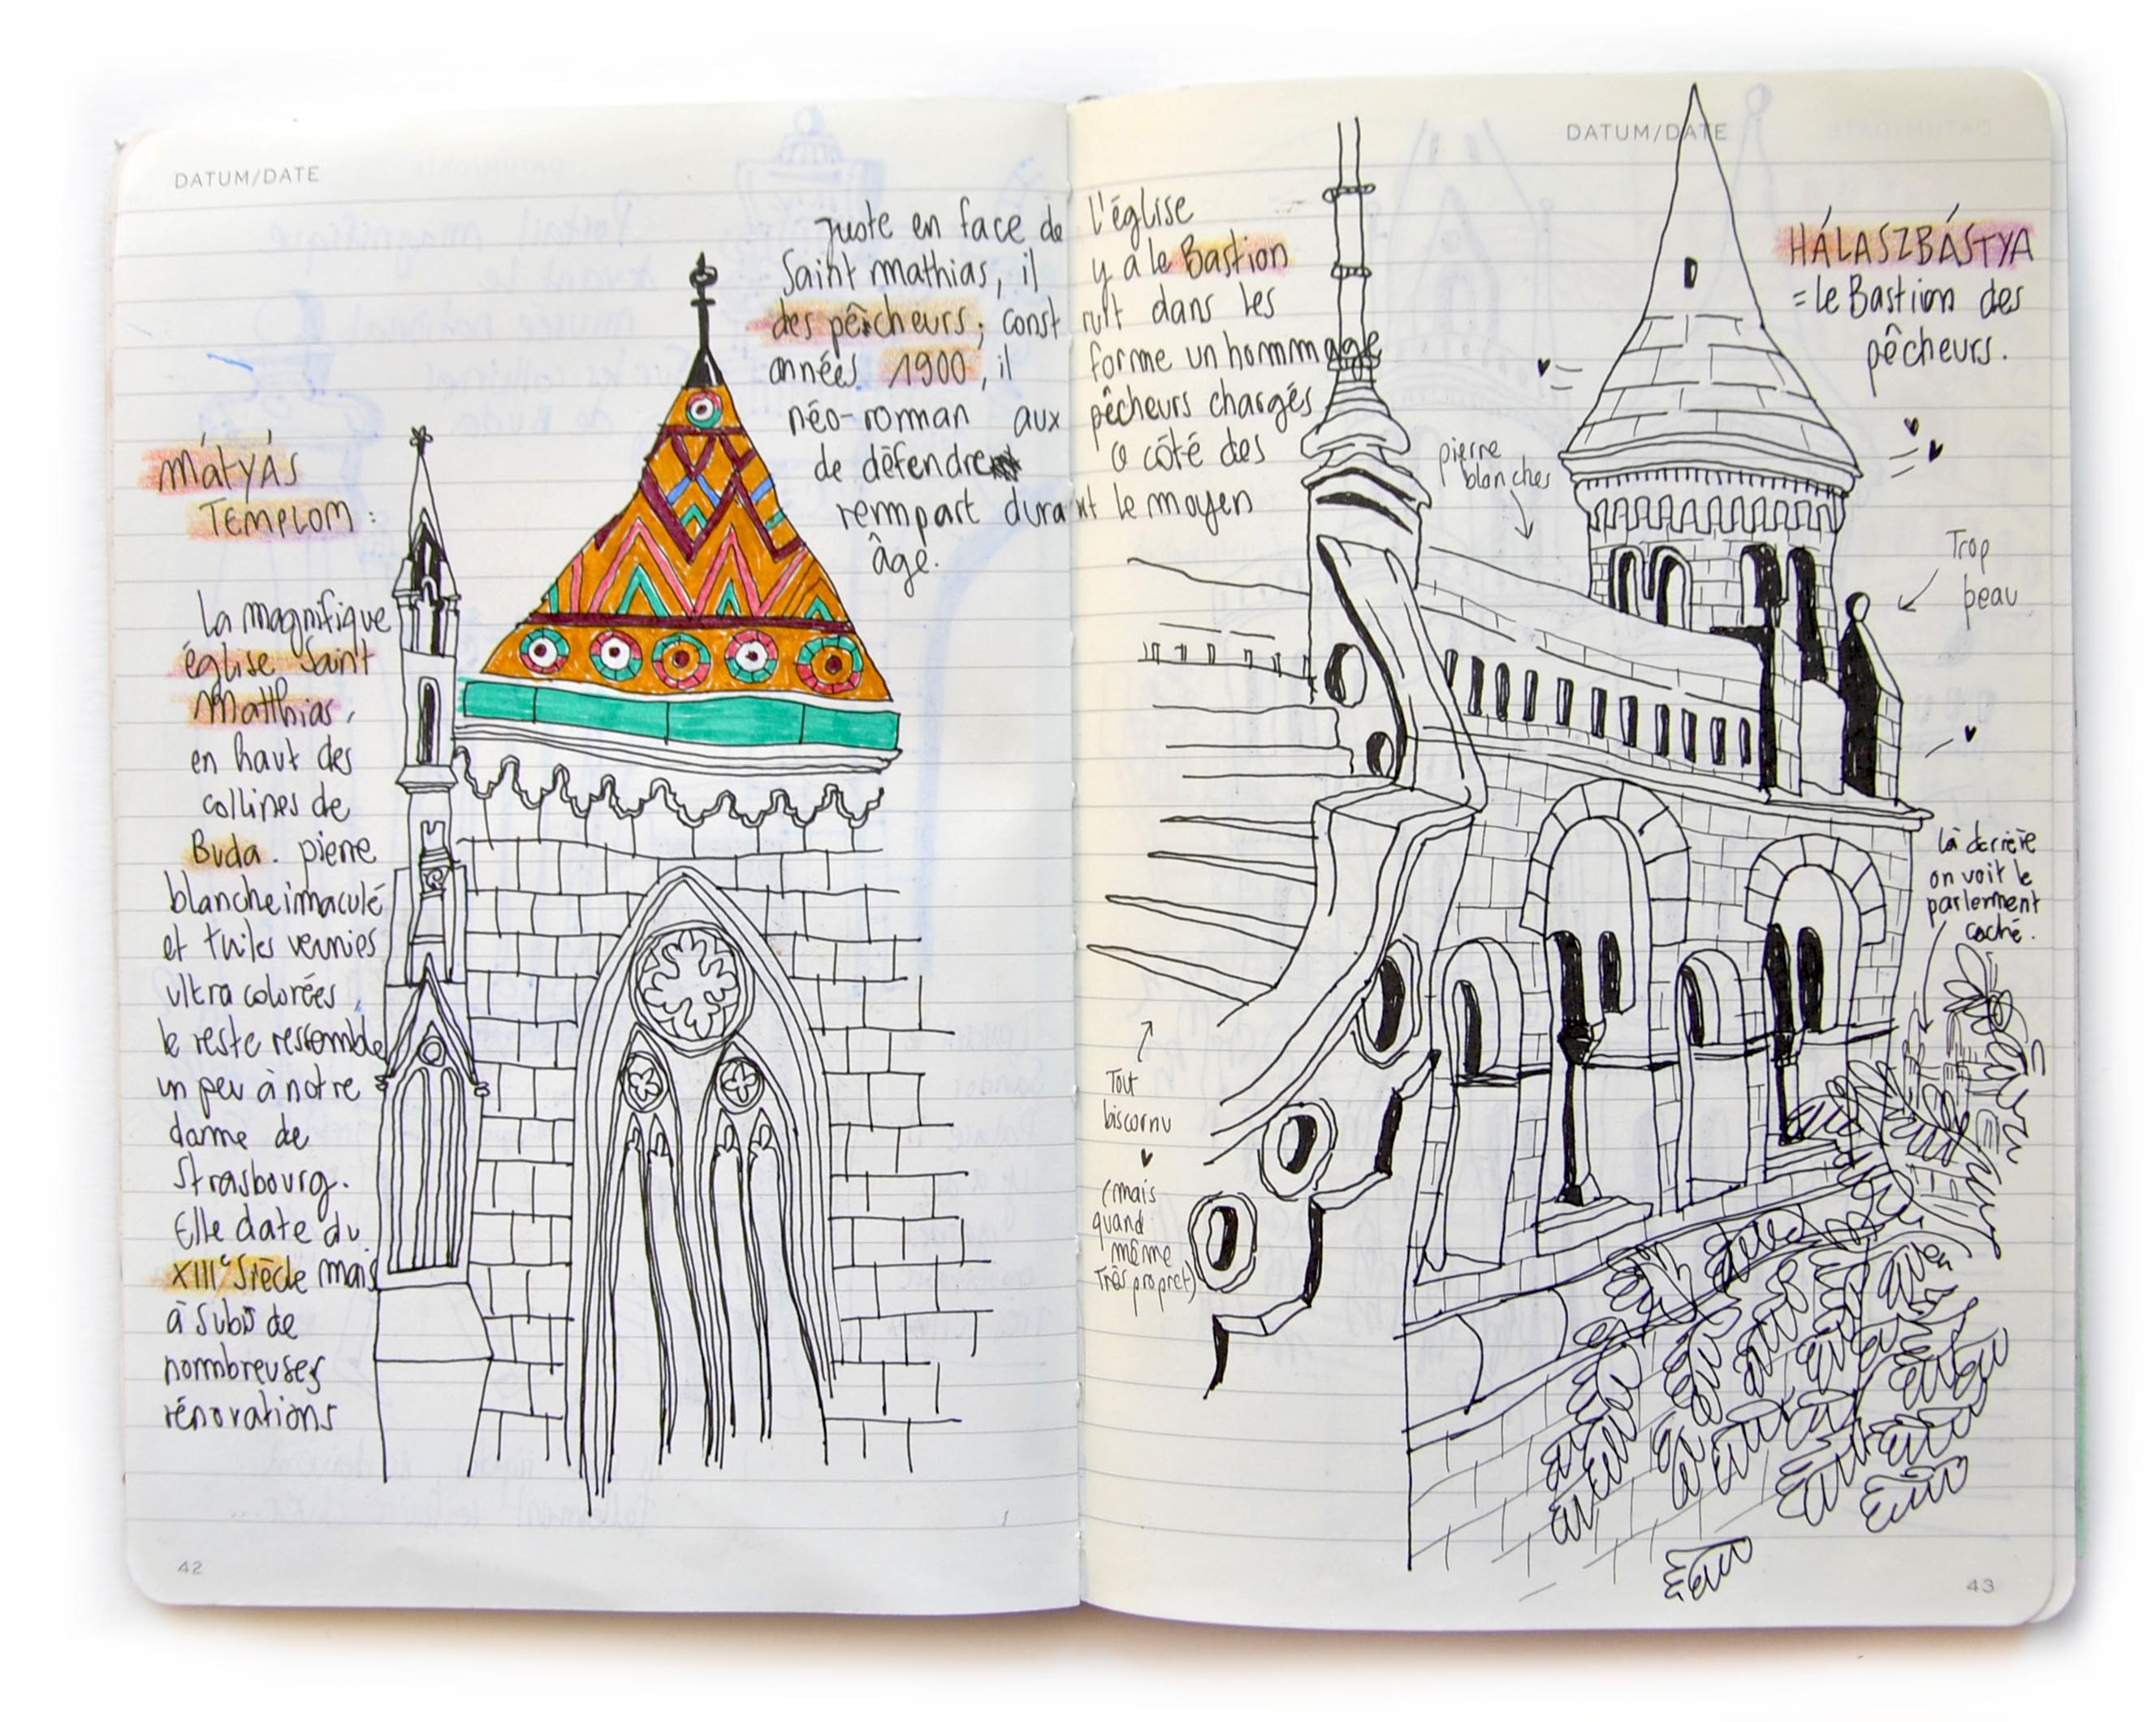 DATUM/DATE
Mátyás
Templom :
La magnifique
église Saint
Matthias,
en haut des
collines de
Buda. pierre
blanche imaculé
et tuiles vernies
ultra colorées,
le reste ressemble
un peu à notre
dame de
Strasbourg.
Elle date du
XIIIe siècle mais
à subit de
nombreuses
rénovations
juste en face de l'église
Saint mathias, il y a le Bastion
des pêcheurs; construit dans les
années 1900, il forme un hommage
néo-roman aux pêcheurs chargés
de défendre ce côté des
rempart durant le moyen
âge.
42
DATUM/DATE
HÁLASZBÁSTYA
= le Bastion des
pêcheurs.
pierre
blanches
Trop
beau
là derrière
on voit le
parlement
caché.
Tout
biscornu
(mais
quand
même
très propret)
43